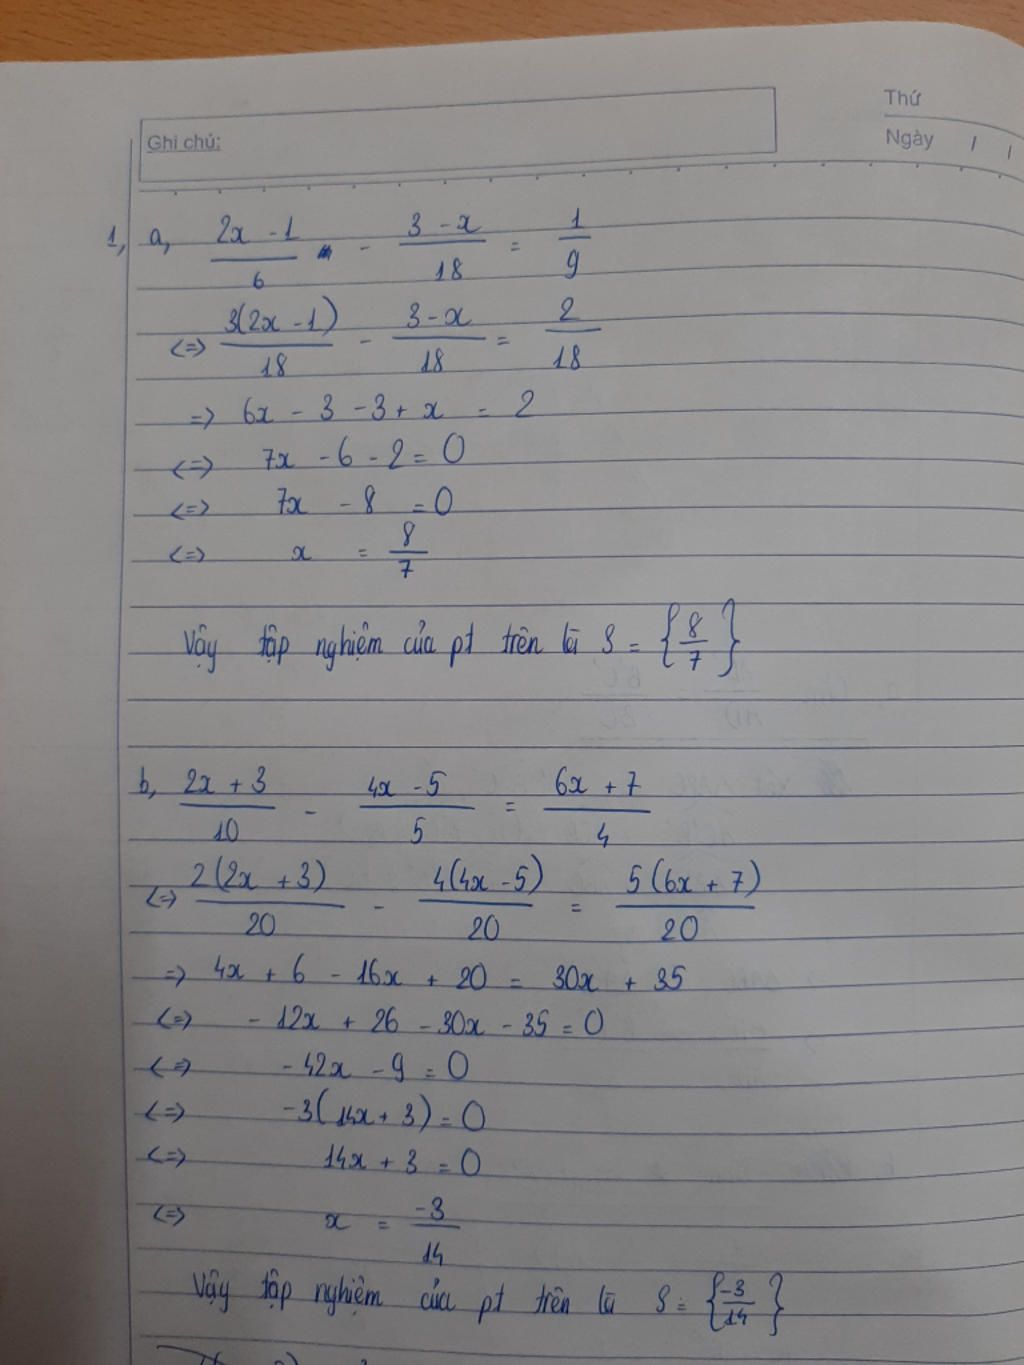 Thứ
Ghi chú:
Ngày / /
1, a, (2x - 1)/6 - (3 - x)/18 = 1/9
<=> 3(2x - 1)/18 - (3 - x)/18 = 2/18
=> 6x - 3 - 3 + x = 2
<=> 7x - 6 - 2 = 0
<=> 7x - 8 = 0
<=> x = 8/7
Vậy tập nghiệm của pt trên là S = {8/7}
b, (2x + 3)/10 - (4x - 5)/5 = (6x + 7)/4
<=> 2(2x + 3)/20 - 4(4x - 5)/20 = 5(6x + 7)/20
=> 4x + 6 - 16x + 20 = 30x + 35
<=> - 12x + 26 - 30x - 35 = 0
<=> - 42x - 9 = 0
<=> -3(14x + 3) = 0
<=> 14x + 3 = 0
<=> x = -3/14
Vậy tập nghiệm của pt trên là S = {-3/14}